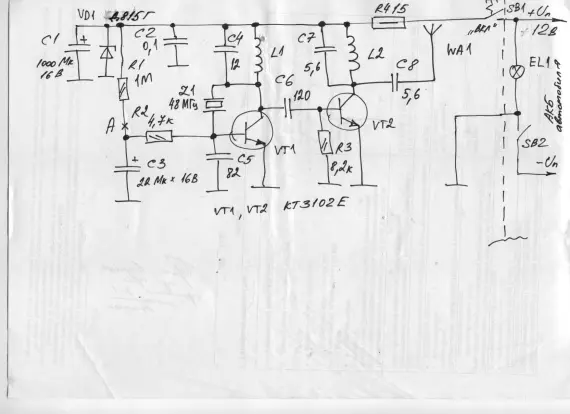 VD1 Д815Г
C1
1000 Мк
16В
C2
0,1
C4
12
L1
C7
5,6
L2
R4 15
WA1
C8
5,6
SB1
"ВКЛ"
+Uп
12В
EL1
АКБ
автомобиля
SB2
-Uп
R1
1М
Z1
48 МГц
C6
120
A
R2
4,7к
VT1
VT2
R3
8,2к
C3
22 Мк × 16В
C5
82
VT1, VT2 КТ3102Е